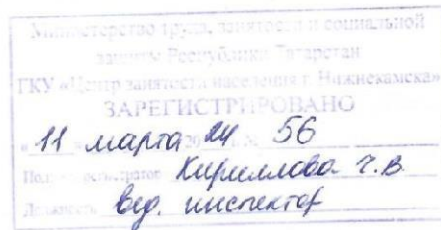 Министерство труда, занятости и социальной
защиты Республики Татарстан
ГКУ «Центр занятости населения г. Нижнекамска»
ЗАРЕГИСТРИРОВАНО
«11» марта 2024 г. № 56
Кириллова Г.В.
Должность вед. инспектор